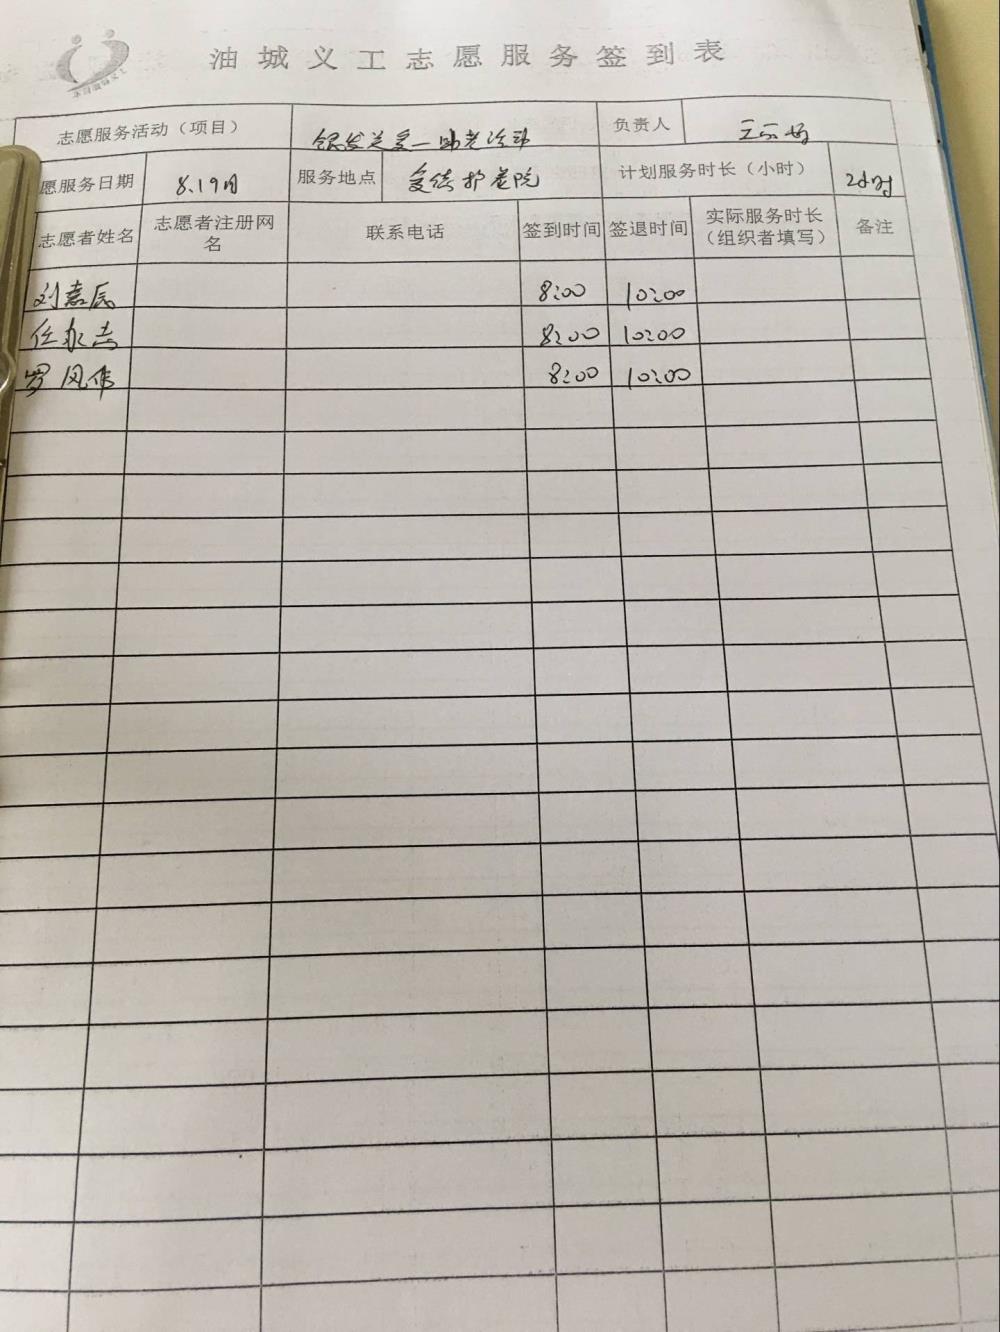 油城义工志愿服务签到表
志愿服务活动（项目） 银发关爱—助老活动 负责人
愿服务日期 8.19日 服务地点 护老院 计划服务时长（小时） 2小时
志愿者姓名 志愿者注册网名 联系电话 签到时间 签退时间 实际服务时长（组织者填写） 备注
刘嘉辰 8:00 10:00
任永志 8:00 10:00
罗风伟 8:00 10:00